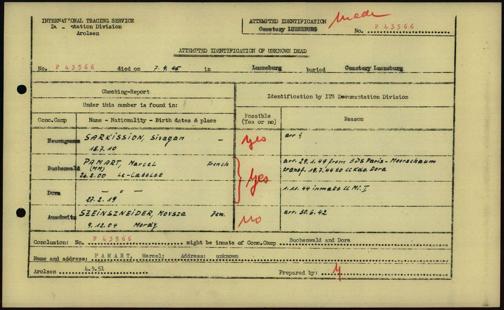 INTERNATIONAL TRACING SERVICE
Documentation Division
Arolsen
ATTEMPTED IDENTIFICATION made
Cemetery LUENEBURG
No. P 43566
ATTEMPTED IDENTIFICATION OF UNKNOWN DEAD
No. P 43566 died on 7.4.45 in Lueneburg buried Cemetery Lueneburg
Checking-Report
Under this number is found in:
Identification by ITS Documentation Division
Conc.Camp
Name - Nationality - Birth dates & place
Possible (Yes or no)
Reason
Neuengamme SARKISSION, - yes arr.
18.7.10
Buchenwald PAMART, Marcel French
(MM) 26.2.00
Yes
Dora - " -
27.2.19
1.11.44 inmate
Auschwitz SZEINSZNEIDER, Moysza no arr. 30.6.42
9.12.04 Mordy
Conclusion: No. P 43566 might be inmate of Conc.Camp Buchenwald and Dora
Name and address: PAMART, Marcel; Address: unknown
Arolsen 4.9.51 Prepared by: